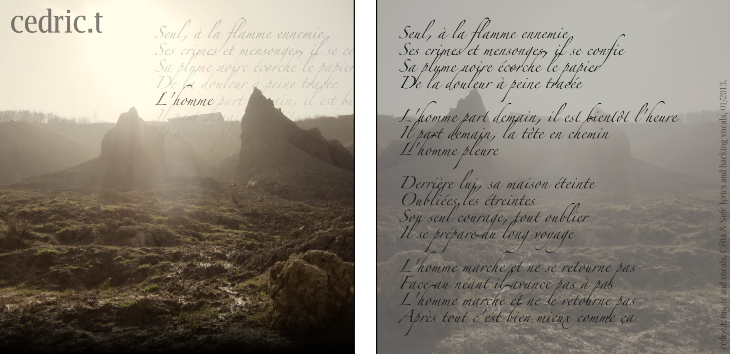 cedric.t
Seul, à la flamme ennemie,
Ses crimes et mensonges, il se c
Sa plume noire écorche le papie
De la douleur à peine tracée
L'homme part demain, il est b
Seul, à la flamme ennemie,
Ses crimes et mensonges, il se confie
Sa plume noire écorche le papier
De la douleur à peine tracée
L'homme part demain, il est bientôt l'heure
Il part demain, la tête en chemin
L'homme pleure
Derrière lui, sa maison éteinte
Oubliées les étreintes
Son seul courage, tout oublier
Il se prépare au long voyage
L'homme marche et ne se retourne pas
Face au néant il avance pas à pas
L'homme marche et ne le retourne pas
Après tout c'est bien mieux comme ça
cedric.t: music and vocals, Celia A. Sele: lyrics and backing vocals, 01/2013.